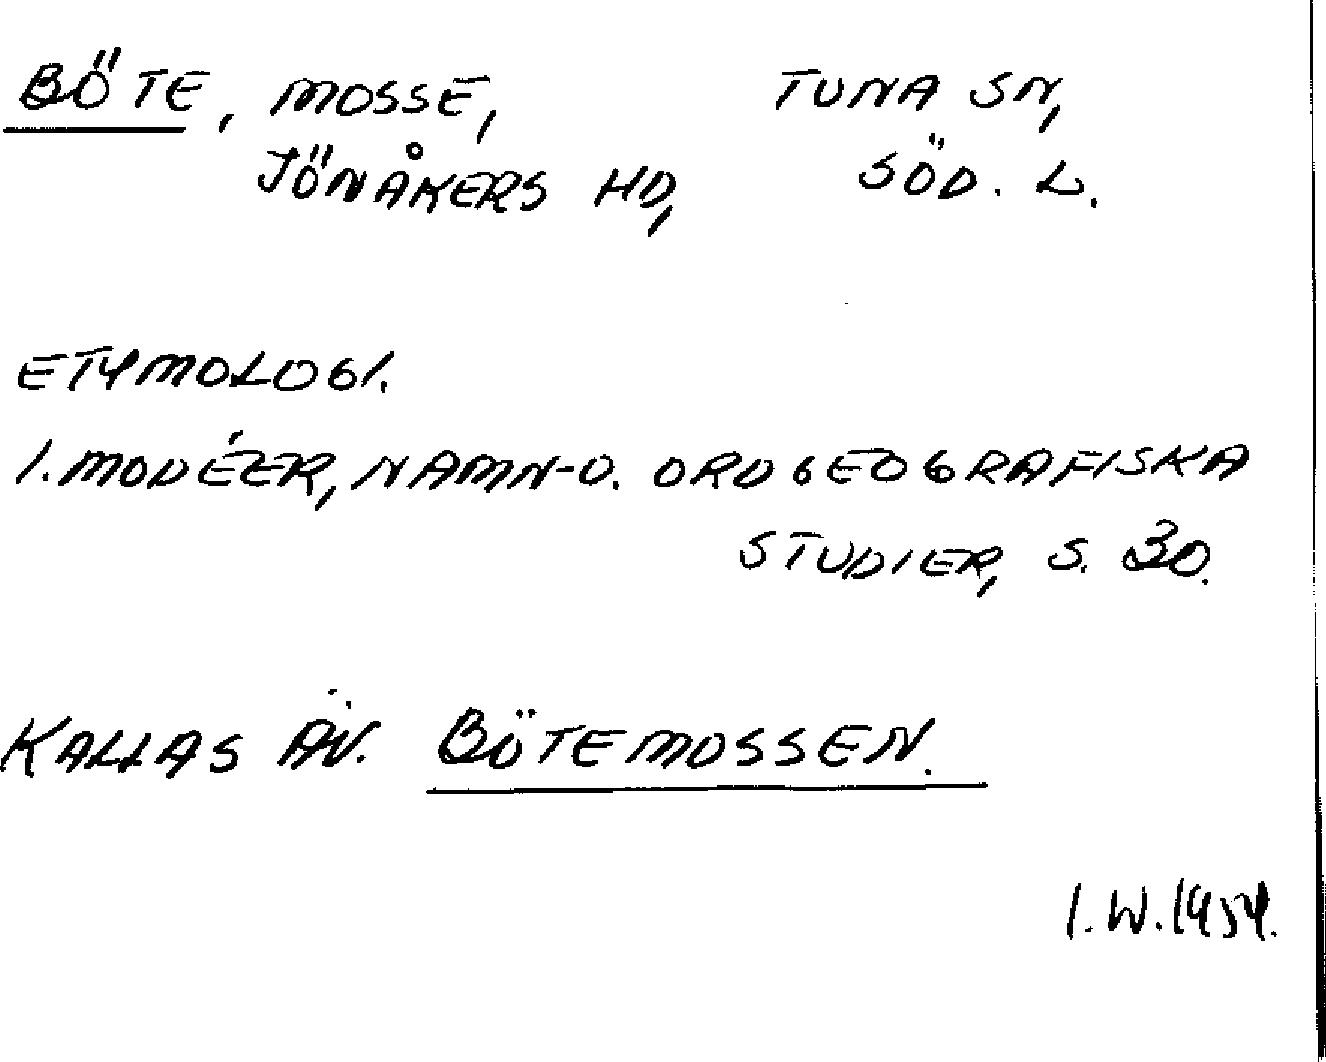 BÖTE, MOSSE, TUNA SN,
JÖNÅKERS HD, SÖD. L.
ETYMOLOGI.
I. MODÉER, NAMN- O. ORDGEOGRAFISKA
STUDIER, S. 30.
KALLAS ÄV. BÖTEMOSSEN.
I. W. 1954.